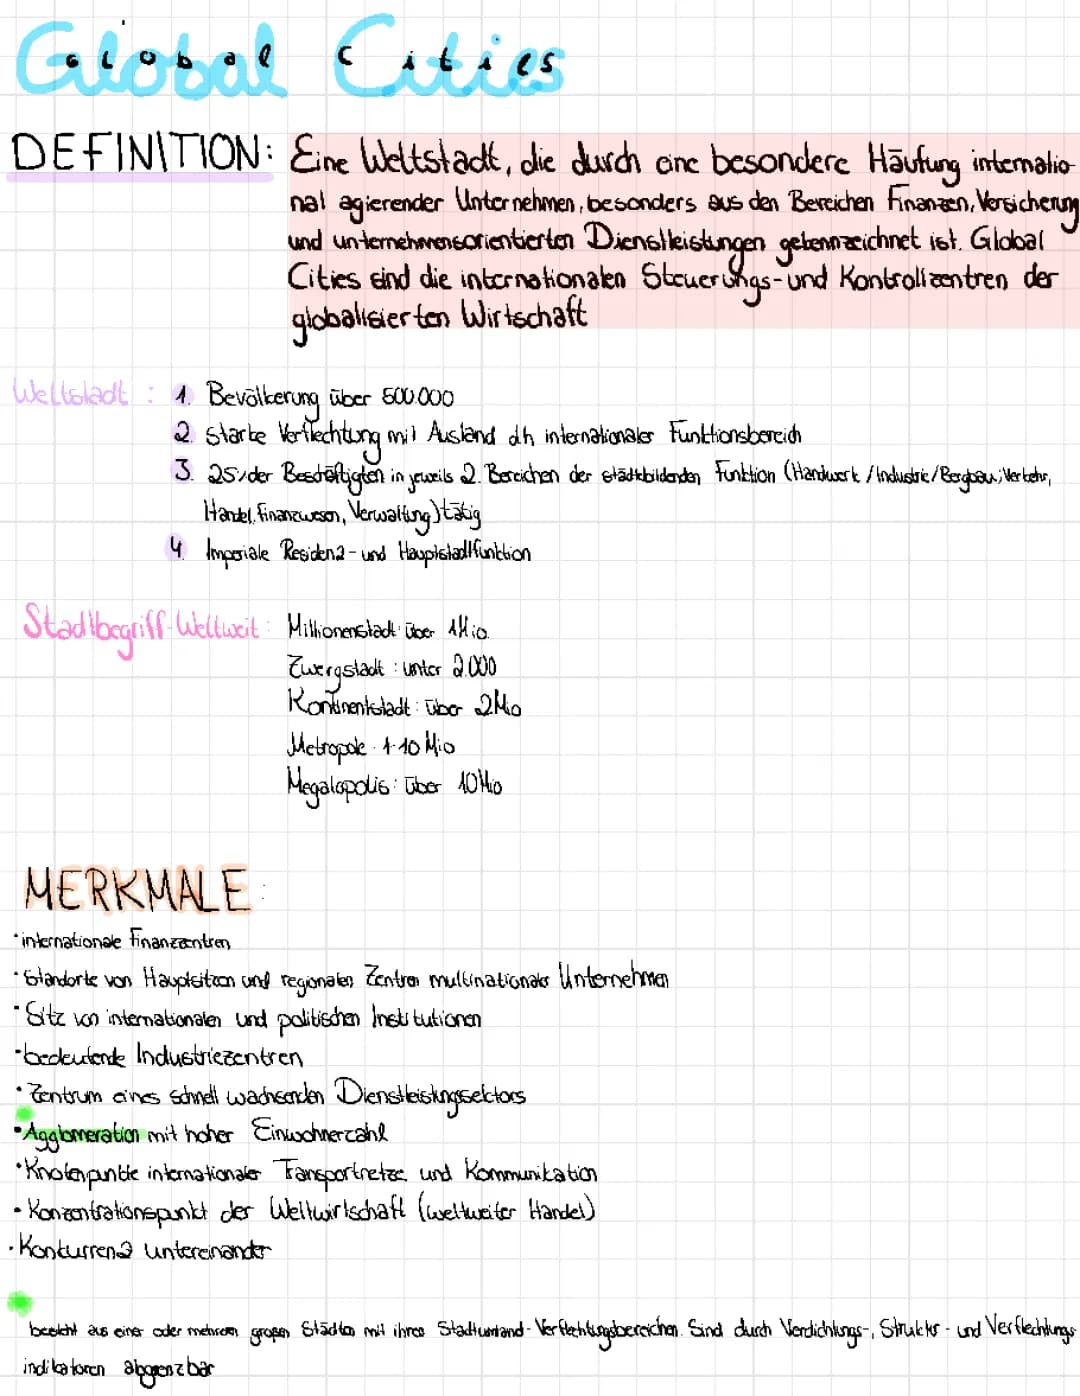 Global Cities
DEFINITION: Eine Weltstadt, die durch eine besondere Häufung internatio-
nal agierender Unternehmen, besonders aus den Bereichen Finanzen, Versicherung
und unternehmensorientierten Dienstleistungen gekennzeichnet ist. Global
Cities sind die internationalen Steuerungs- und Kontrollzentren der
globalisierten Wirtschaft
Weltstadt : 1. Bevölkerung über 500.000
2. Starke Verflechtung mit Ausland dh internationaler Funktionsbereich
3. 25% der Beschäftigten in jeweils 2. Bereichen der städtebildenden Funktion (Handwerk / Industrie / Bergbau; Verkehr,
Handel, Finanzwesen, Verwaltung) tätig
4. Imperiale Residenz- und Hauptstadtfunktion
Stadtbegriff-Weltweit: Millionenstadt: über 1Mio.
Zwergstadt : unter 2.000
Kontinentstadt: über 2Mio
Metropole: 1-10 Mio
Megalopolis: über 10Mio
MERKMALE:
• internationale Finanzzentren
• Standorte von Hauptsitzen und regionalen Zentren multinationaler Unternehmen
• Sitz von internationalen und politischen Institutionen
• bedeutende Industriezentren
• Zentrum eines schnell wachsenden Dienstleistungssektors
• Agglomeration mit hoher Einwohnerzahl
• Knotenpunkte internationaler Transportnetze und Kommunikation
• Konzentrationspunkt der Weltwirtschaft (weltweiter Handel)
• Konkurrenz untereinander
besteht aus einer oder mehreren großen Städten mit ihren Stadtumland-Verflechtungsbereichen. Sind durch Verdichtungs-, Struktur- und Verflechtungs-
indikatoren abgrenzbar